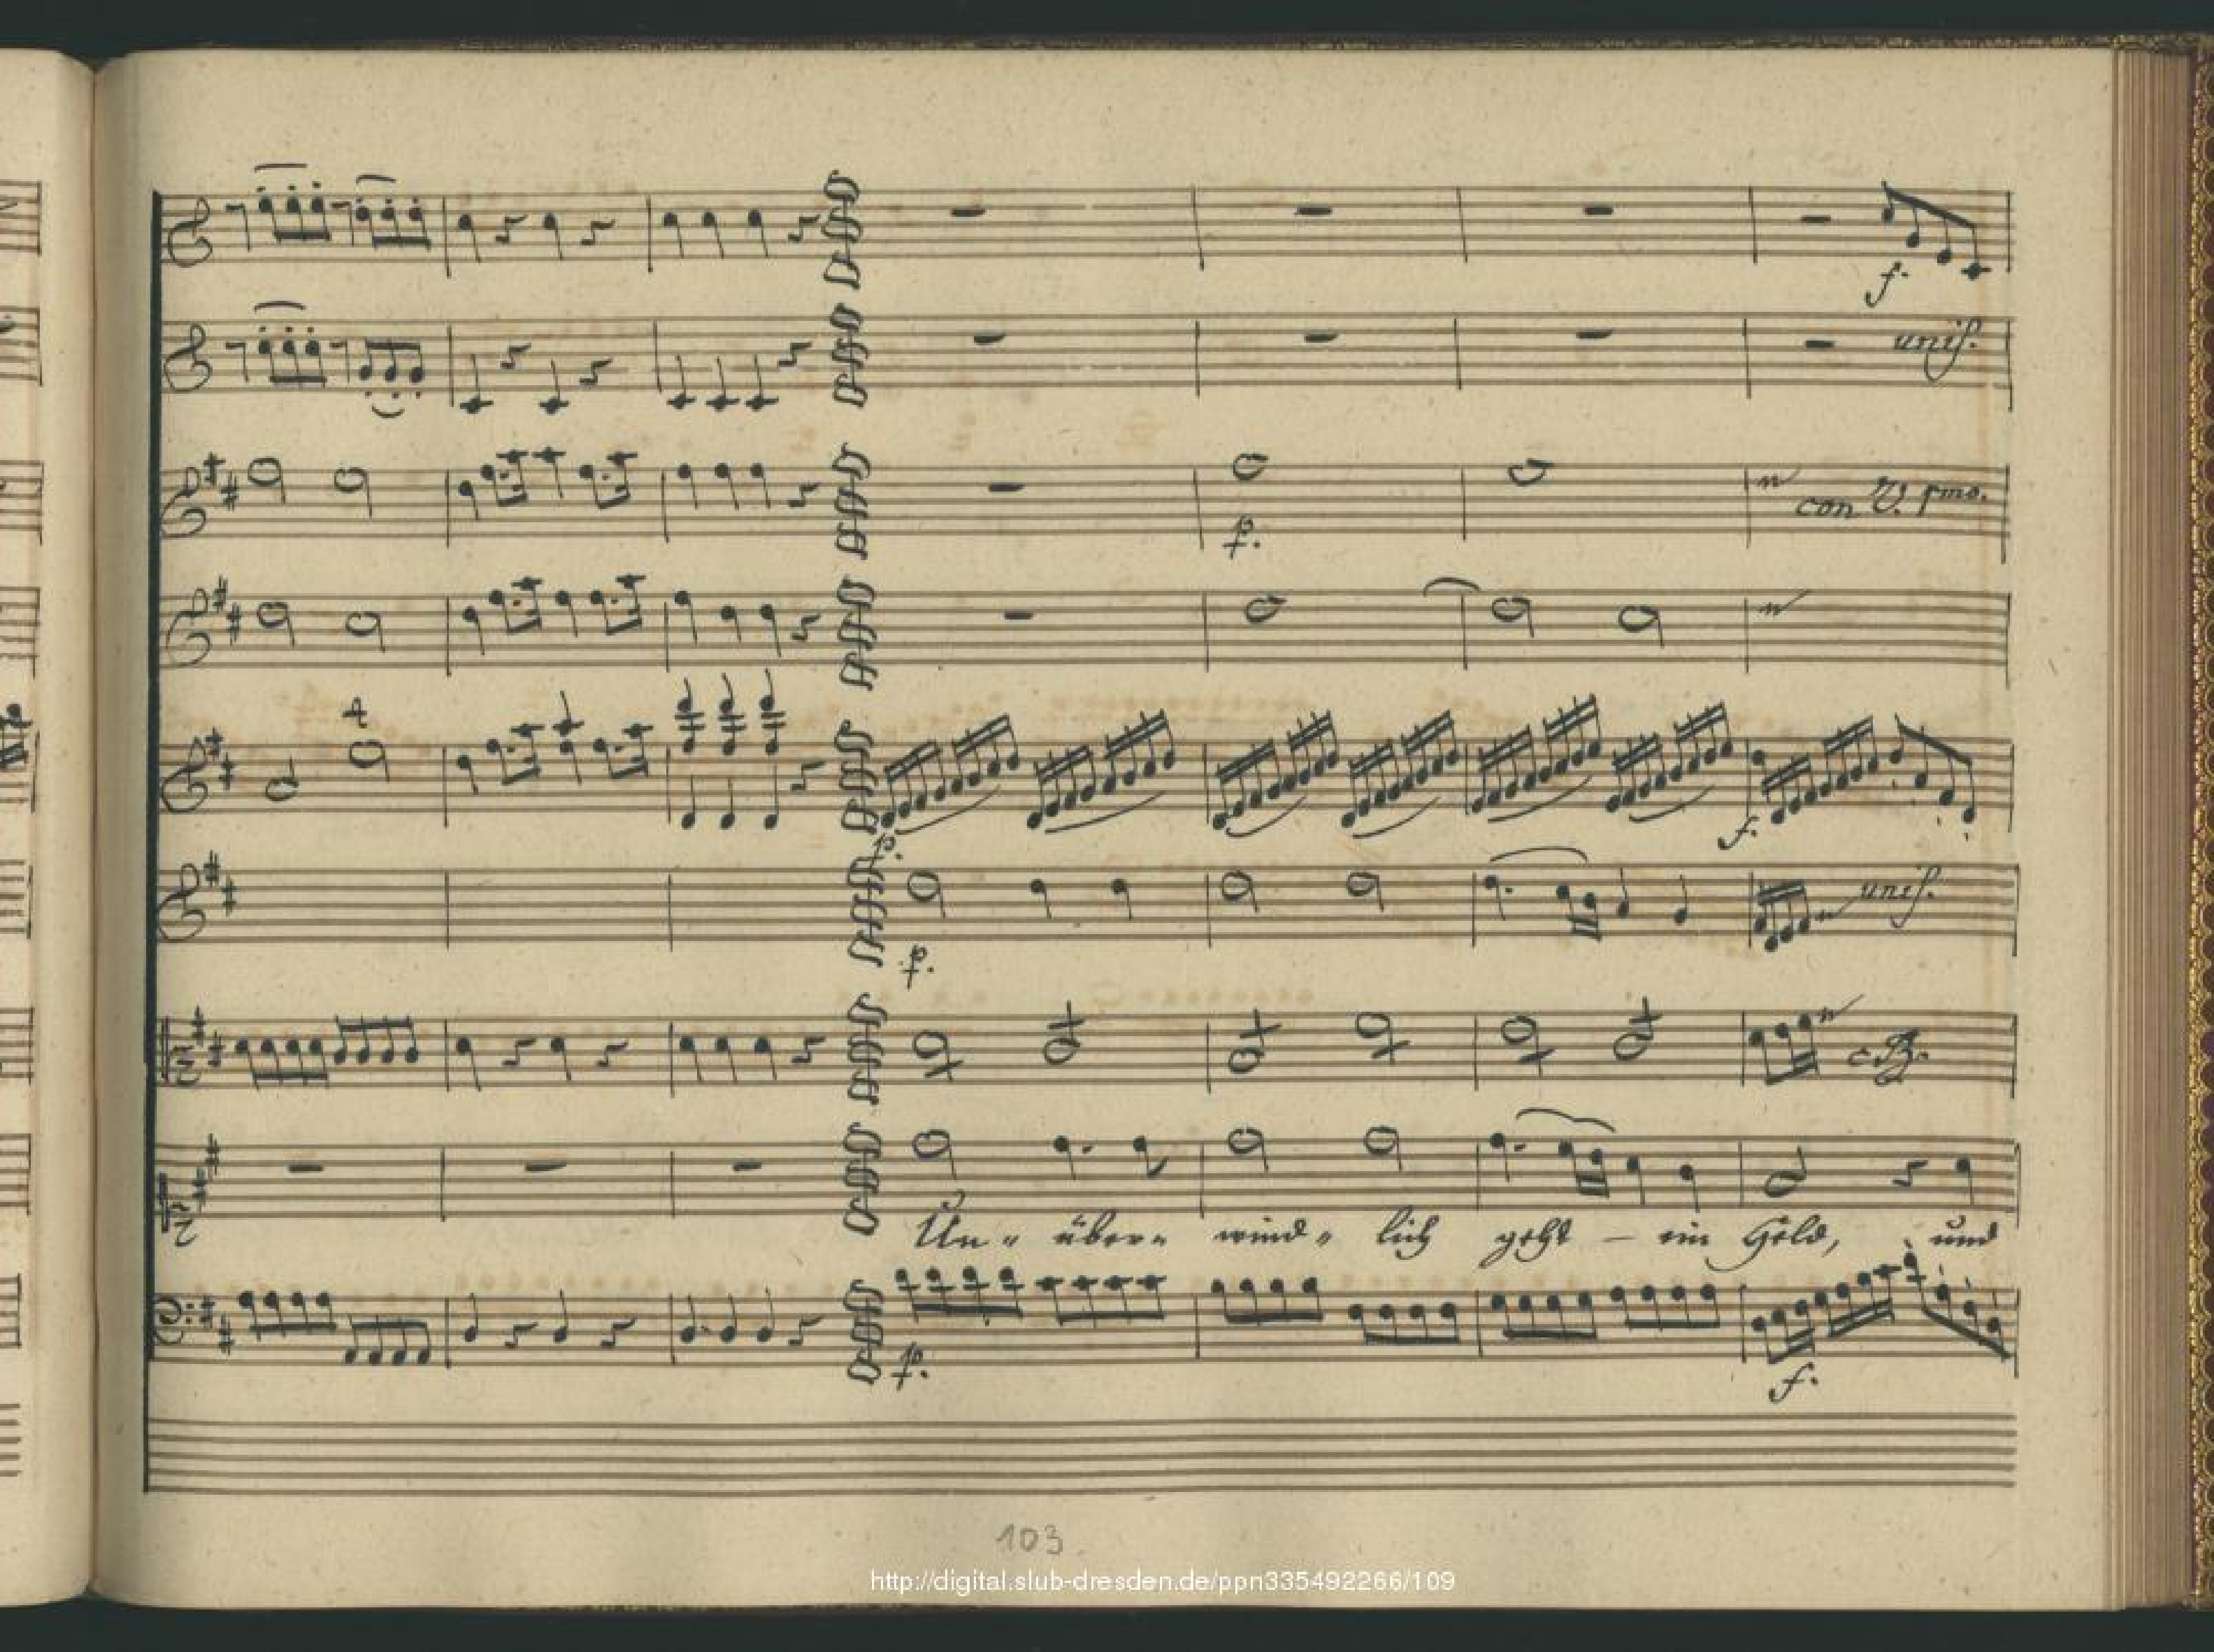 f.
unis.
con V. pmo.
p.
p.
f.
unis.
p.
c B.
Un = über = wind = lich geht – ein Held, und
p.
f.
103.
http://digital.slub-dresden.de/ppn335492266/109